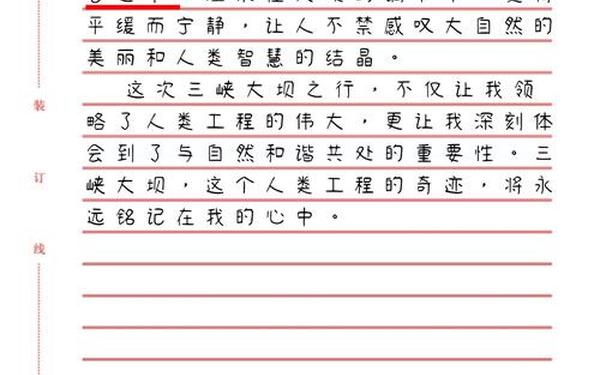 平缓而宁静，让人不禁感叹大自然的
美丽和人类智慧的结晶。
这次三峡大坝之行，不仅让我领
略了人类工程的伟大，更让我深刻体
会到了与自然和谐共处的重要性。三
峡大坝，这个人类工程的奇迹，将永
远铭记在我的心中。
装
订
线